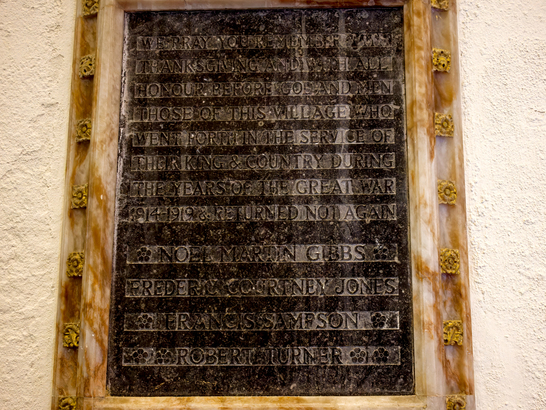 WE PRAY YOU REMEMBER WITH
THANKSGIVING AND WITH ALL
HONOUR BEFORE GOD AND MEN
THOSE OF THIS VILLAGE WHO
WENT FORTH IN THE SERVICE OF
THEIR KING & COUNTRY DURING
THE YEARS OF THE GREAT WAR
1914-1919 & RETURNED NOT AGAIN
NOEL MARTIN GIBBS
FREDERIC COURTNEY JONES
FRANCIS SAMPSON
ROBERT TURNER